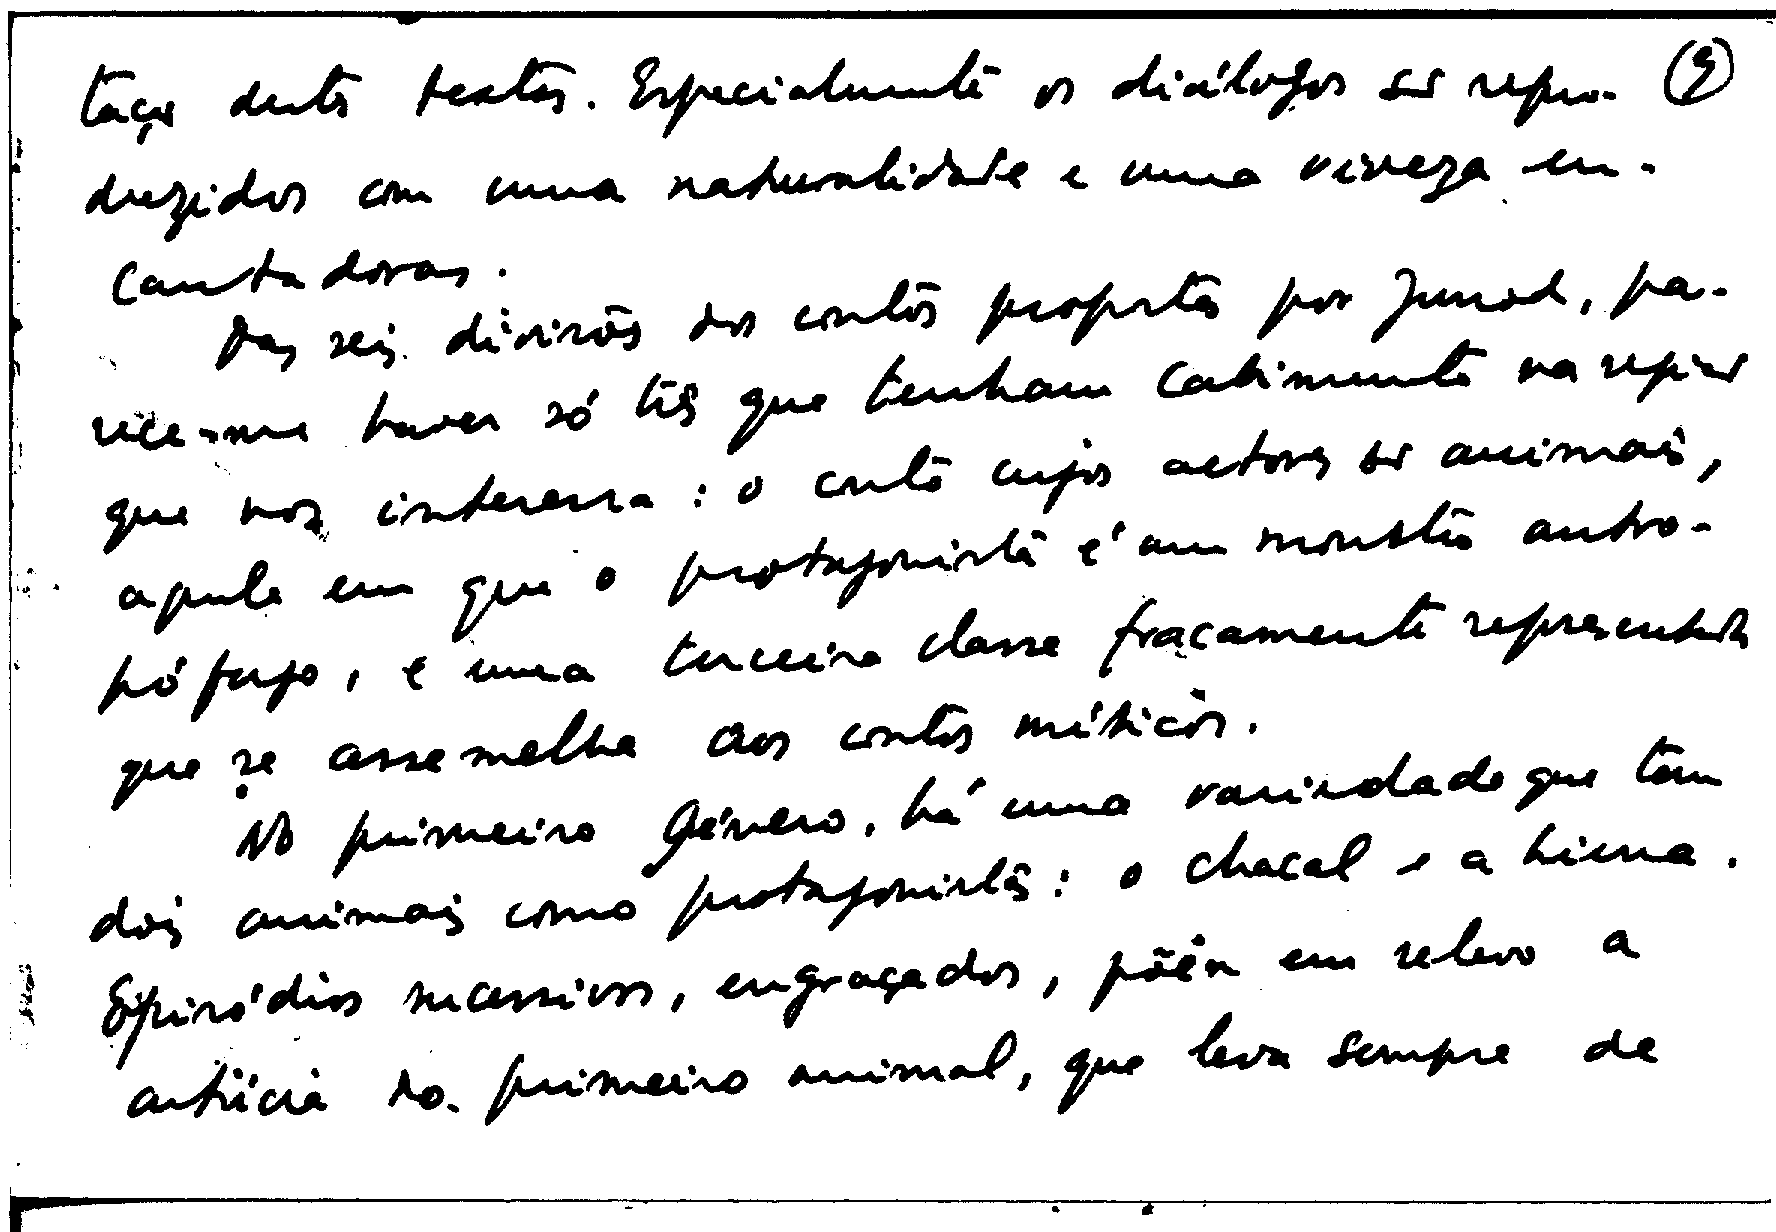 tação destes textos. Especialmente os diálogos são repro- (9)
duzidos com uma naturalidade e uma viveza en-
cantadoras.
Das seis divisões dos contos propostas por Junod, pa-
rece-me haver só três que tenham cabimento na região
que nos interessa: o conto cujos actores são animais,
aquele em que o protagonista é um monstro antro-
pófago, e uma terceira classe fracamente representada
que se assemelha aos contos míticos.
No primeiro género, há uma variedade que tem
dois animais como protagonistas: o chacal e a hiena.
Episódios sucessivos, engraçados, põem em relevo a
astúcia do primeiro animal, que leva sempre de